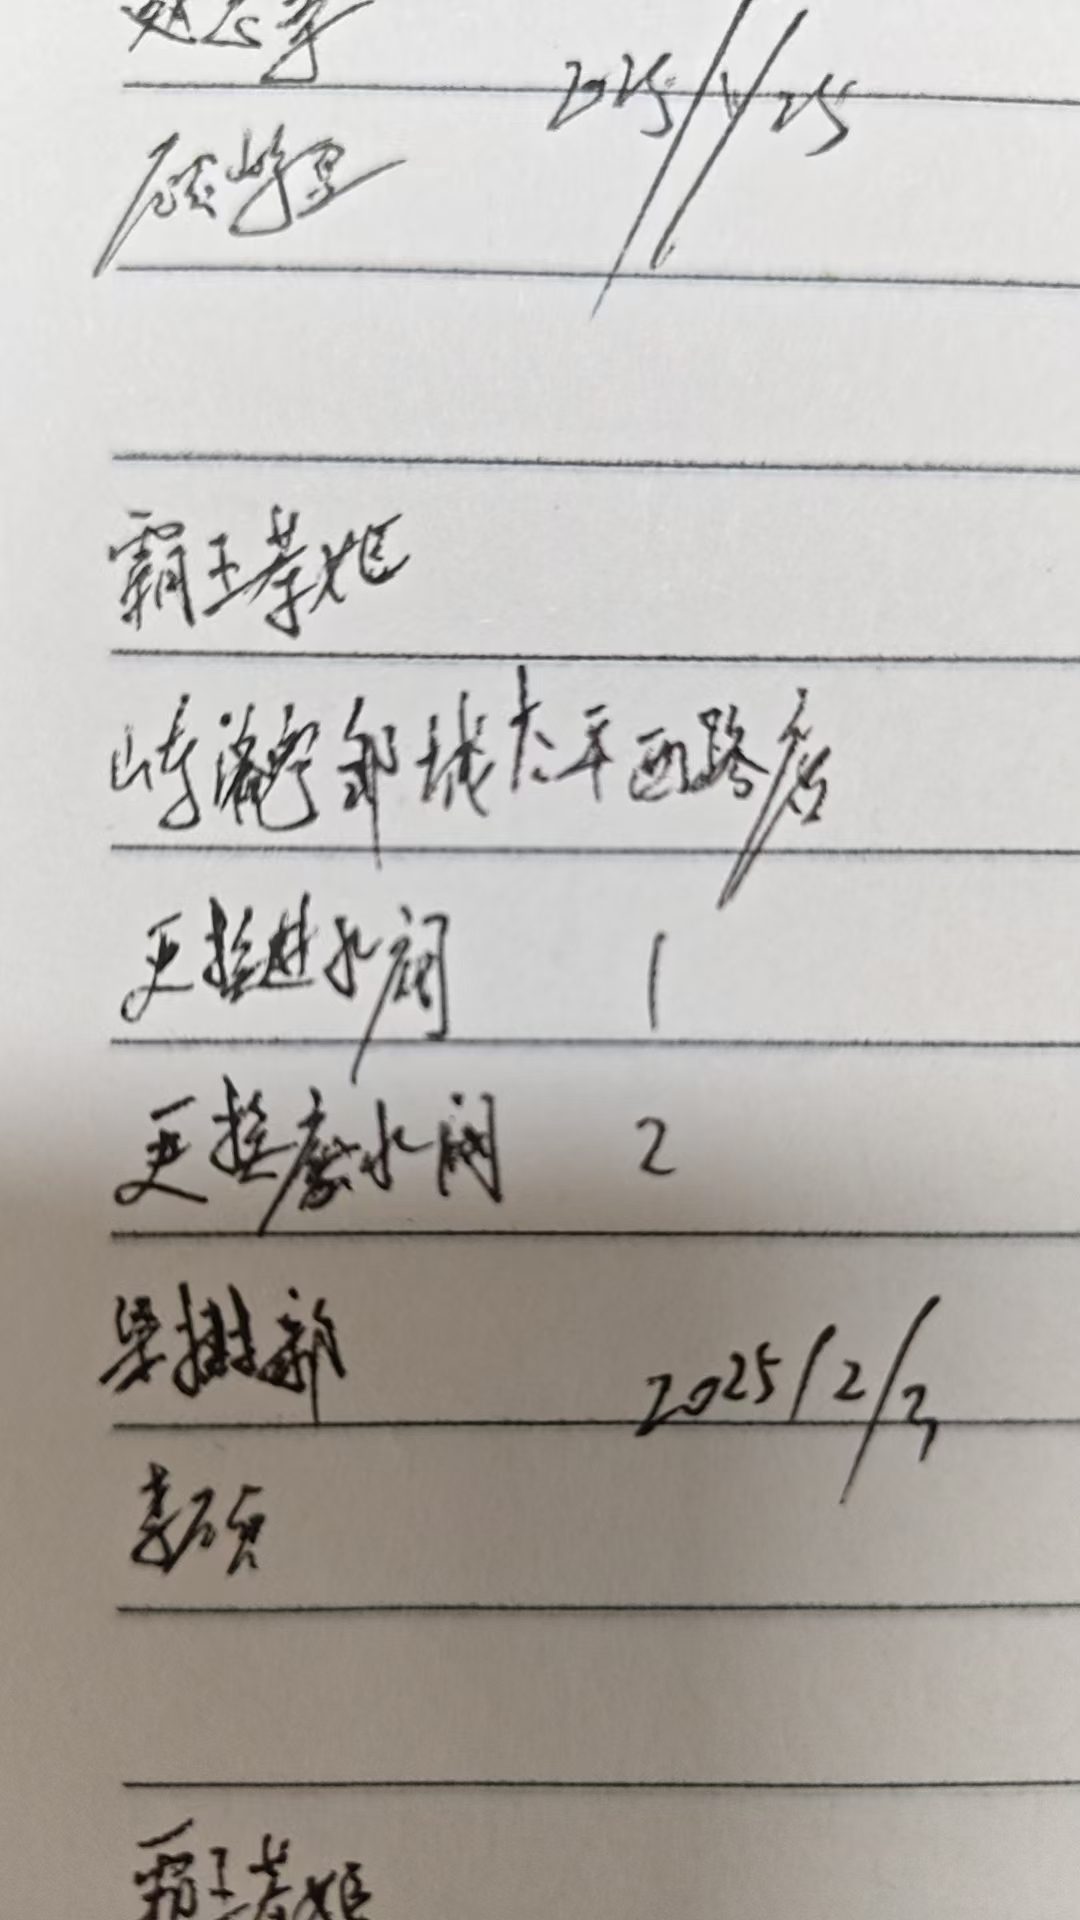 2025/1/25
霸王茶姬
山东济宁邹城太平西路店
更换进水阀 1
更换废水阀 2
梁树新 2025/2/3
李硕
霸王茶姬